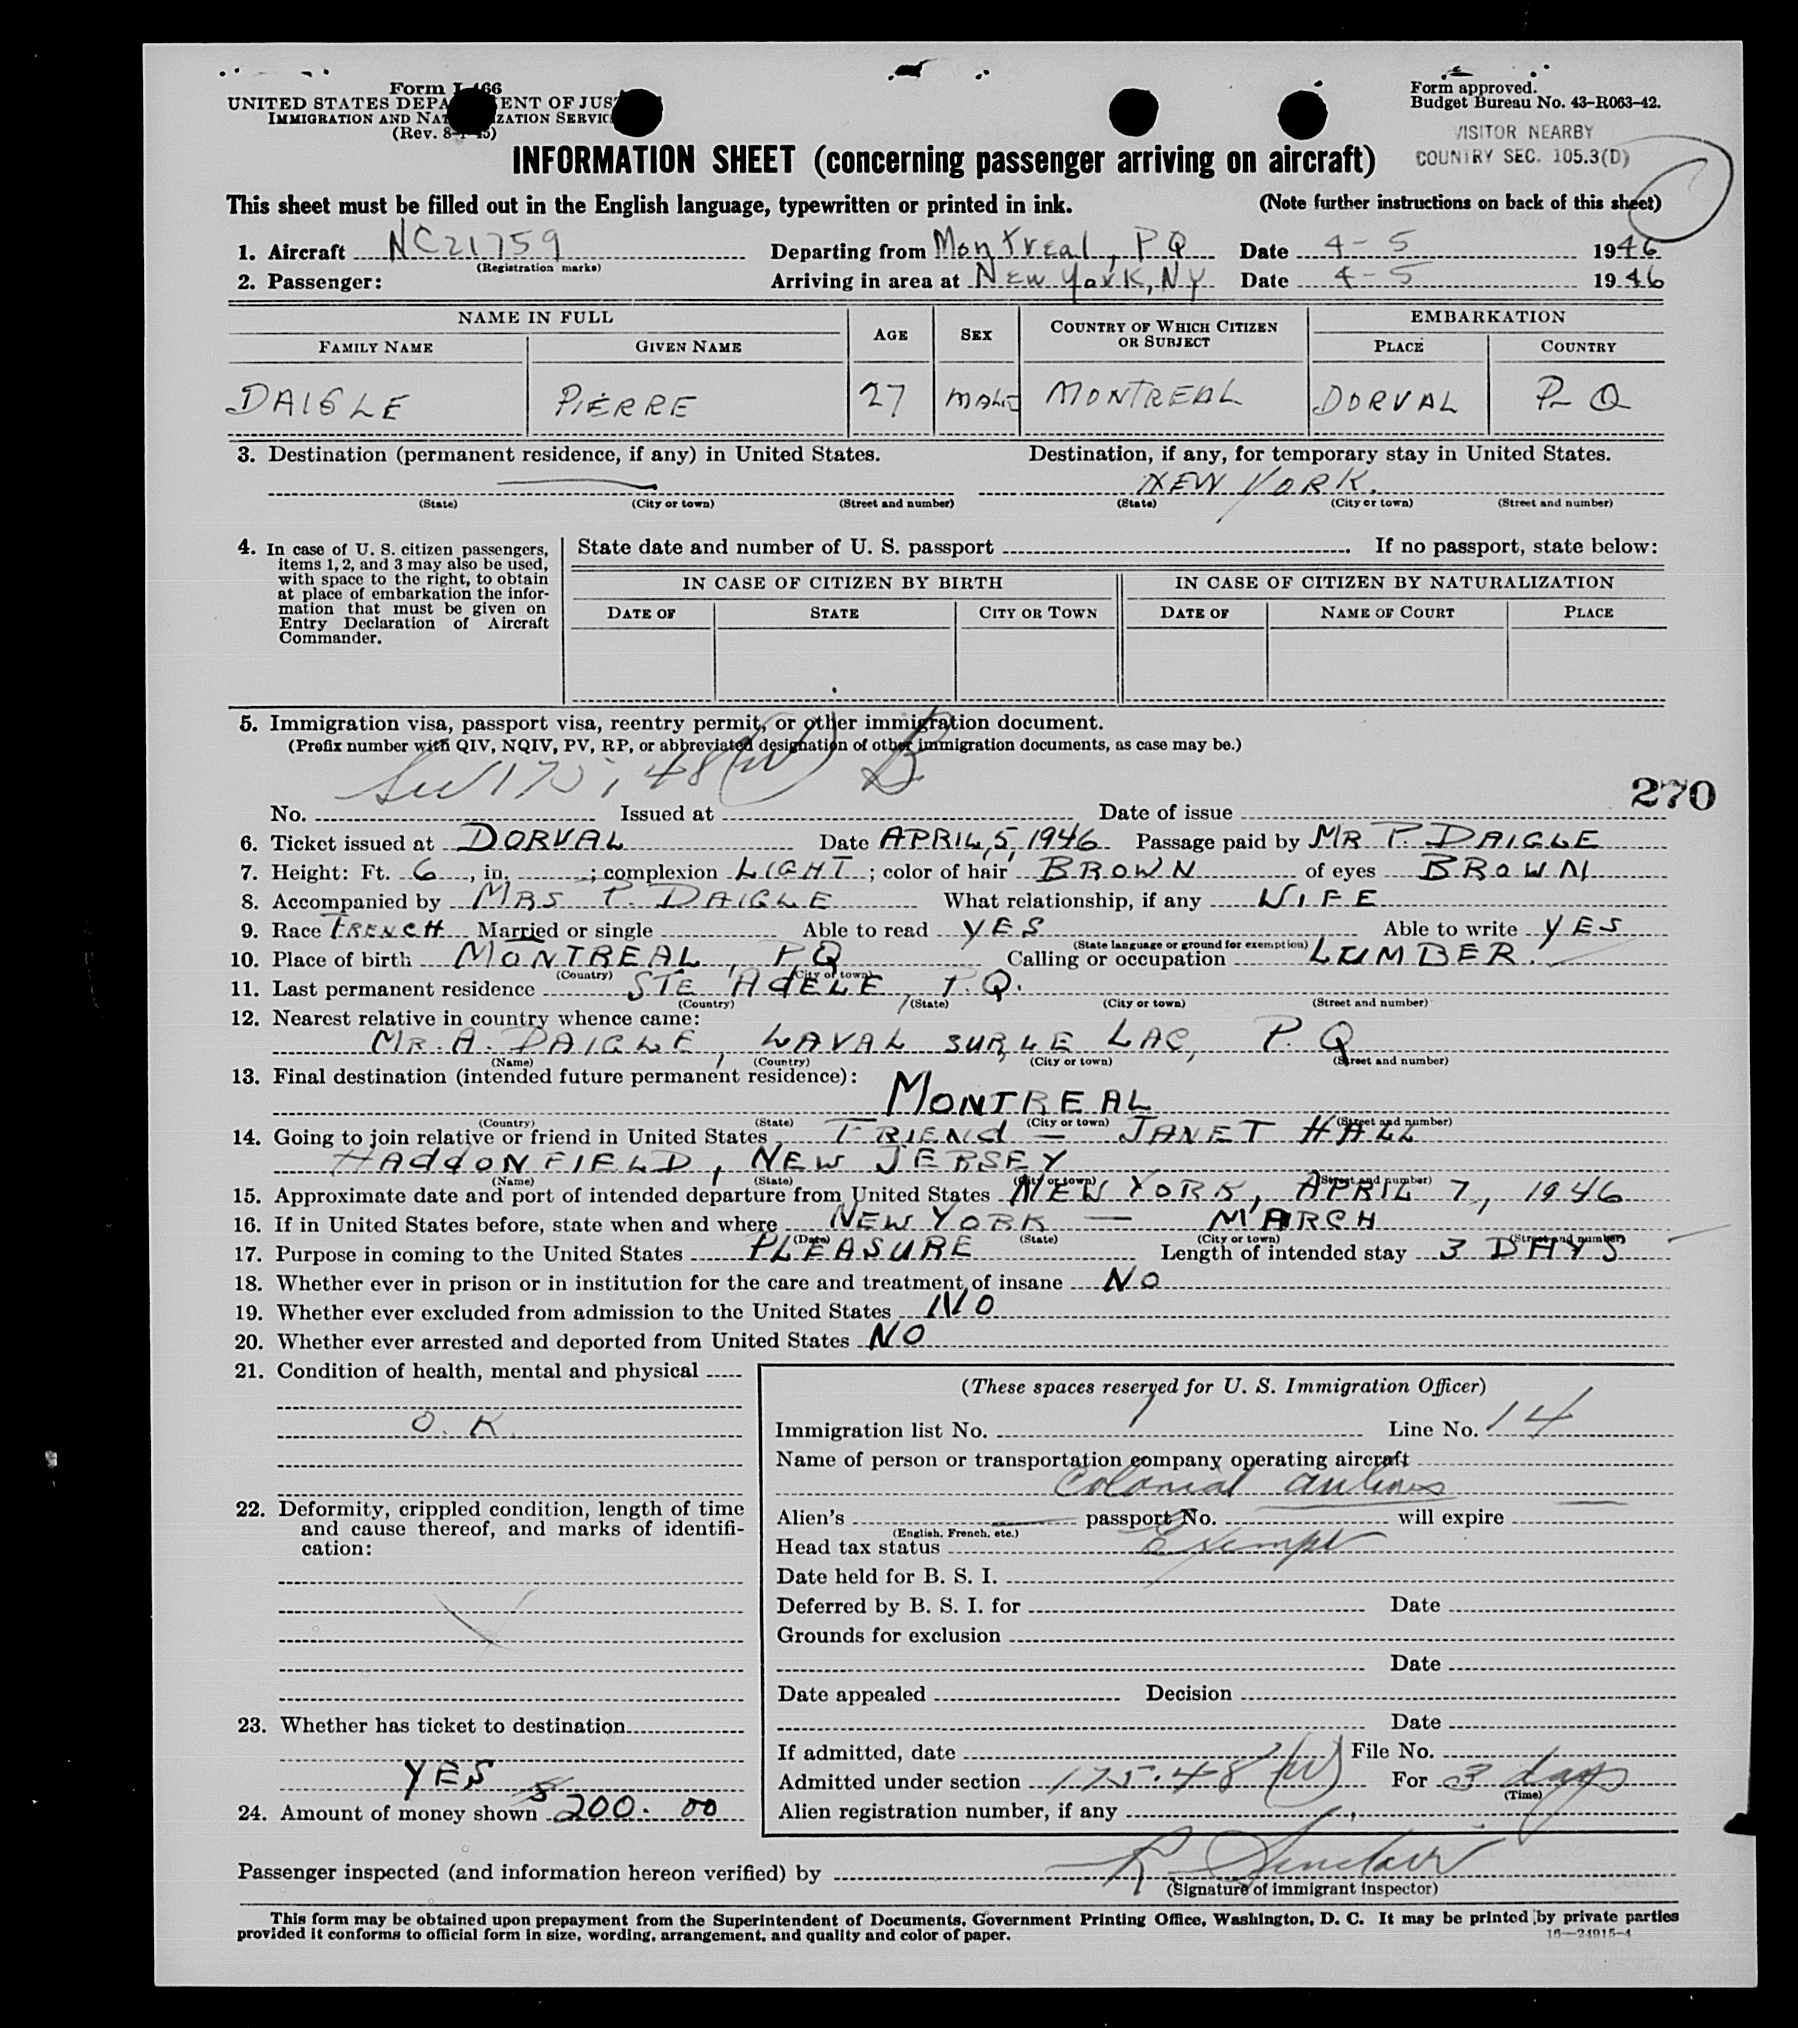 Form I-466
UNITED STATES DEPARTMENT OF JUSTICE
IMMIGRATION AND NATURALIZATION SERVICE
(Rev. 8-1-45)
Form approved.
Budget Bureau No. 43-R063-42.
VISITOR NEARBY
COUNTRY SEC. 105.3(D)
INFORMATION SHEET (concerning passenger arriving on aircraft)
This sheet must be filled out in the English language, typewritten or printed in ink. (Note further instructions on back of this sheet)
1. Aircraft NC21759 Departing from Montreal, PQ Date 4-5 1946
(Registration marks)
2. Passenger: Arriving in area at New York, NY Date 4-5 1946
NAME IN FULL AGE SEX COUNTRY OF WHICH CITIZEN OR SUBJECT EMBARKATION
FAMILY NAME GIVEN NAME PLACE COUNTRY
DAIGLE PIERRE 27 MALE MONTREAL DORVAL P Q
3. Destination (permanent residence, if any) in United States. Destination, if any, for temporary stay in United States.
NEW YORK.
(State) (City or town) (Street and number) (State) (City or town) (Street and number)
4. In case of U. S. citizen passengers, items 1, 2, and 3 may also be used, with space to the right, to obtain at place of embarkation the information that must be given on Entry Declaration of Aircraft Commander.
State date and number of U. S. passport . If no passport, state below:
IN CASE OF CITIZEN BY BIRTH IN CASE OF CITIZEN BY NATURALIZATION
DATE OF STATE CITY OR TOWN DATE OF NAME OF COURT PLACE
5. Immigration visa, passport visa, reentry permit, or other immigration document.
(Prefix number with QIV, NQIV, PV, RP, or abbreviated designation of other immigration documents, as case may be.)
175.48(W) B
270
No. Issued at Date of issue
6. Ticket issued at DORVAL Date APRIL, 5, 1946 Passage paid by MR P. DAIGLE
7. Height: Ft. 6, in. ; complexion LIGHT; color of hair BROWN of eyes BROWN
8. Accompanied by MRS P. DAIGLE What relationship, if any WIFE
9. Race FRENCH Married or single Able to read YES Able to write YES
(State language or ground for exemption)
10. Place of birth MONTREAL, PQ Calling or occupation LUMBER.
(Country) (City or town)
11. Last permanent residence STE ADELE, P.Q.
(Country) (State) (City or town) (Street and number)
12. Nearest relative in country whence came:
MR. A. DAIGLE, LAVAL SUR LE LAC, P. Q
(Name) (Country) (City or town) (Street and number)
13. Final destination (intended future permanent residence):
MONTREAL
(Country) (State) (City or town) (Street and number)
14. Going to join relative or friend in United States FRIEND — JANET HALL
HADDONFIELD, NEW JERSEY
(Name) (State) (City or town) (Street and number)
15. Approximate date and port of intended departure from United States NEW YORK, APRIL 7, 1946
16. If in United States before, state when and where NEW YORK — MARCH
(Date) (State) (City or town) (Street and number)
17. Purpose in coming to the United States PLEASURE Length of intended stay 3 DAYS
18. Whether ever in prison or in institution for the care and treatment of insane NO
19. Whether ever excluded from admission to the United States NO
20. Whether ever arrested and deported from United States NO
21. Condition of health, mental and physical
O.K.
22. Deformity, crippled condition, length of time and cause thereof, and marks of identification:
23. Whether has ticket to destination
YES
24. Amount of money shown $200.00
(These spaces reserved for U. S. Immigration Officer)
Immigration list No. 1 Line No. 14
Name of person or transportation company operating aircraft
Colonial Airlines
Alien's passport No. will expire
(English, French, etc.)
Head tax status Exempt
Date held for B. S. I.
Deferred by B. S. I. for Date
Grounds for exclusion
Date
Date appealed Decision
Date
If admitted, date File No.
Admitted under section 175.48(W) For 3 days
(Time)
Alien registration number, if any
Passenger inspected (and information hereon verified) by R Sinclair
(Signature of immigrant inspector)
This form may be obtained upon prepayment from the Superintendent of Documents, Government Printing Office, Washington, D. C. It may be printed by private parties
provided it conforms to official form in size, wording, arrangement, and quality and color of paper. 16—24915-4